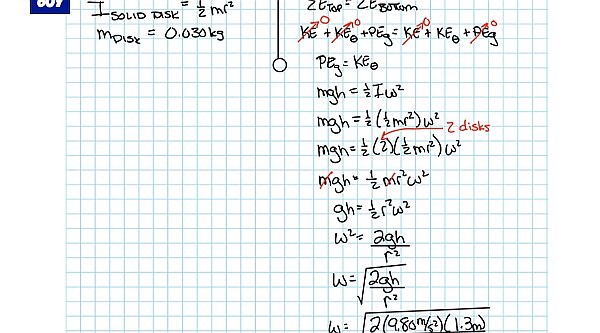 GUY
I SOLID DISK = ½ mr²
m DISK = 0.030kg
ΣE TOP = ΣE BOTTOM
KE + KE_θ + PE_g = KE + KE_θ + PE_g
0 0 0 0
PE_g = KE_θ
mgh = ½ I ω²
mgh = ½ (½ mr²) ω²
2 disks
mgh = ½ (2)(½ mr²) ω²
mgh = ½ mr² ω²
gh = ½ r² ω²
ω² = 2gh / r²
ω = √(2gh / r²)
ω = √(2(9.80 m/s²)(1.3m)